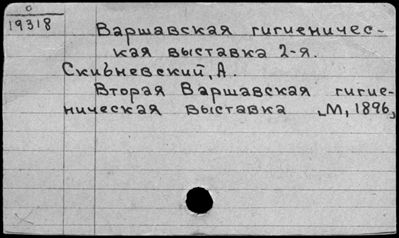 0
19318
Варшавская гигиеничес-
кая выставка 2-я.
Скибневский, А.
Вторая Варшавская гигие-
ническая выставка [М, 1896]